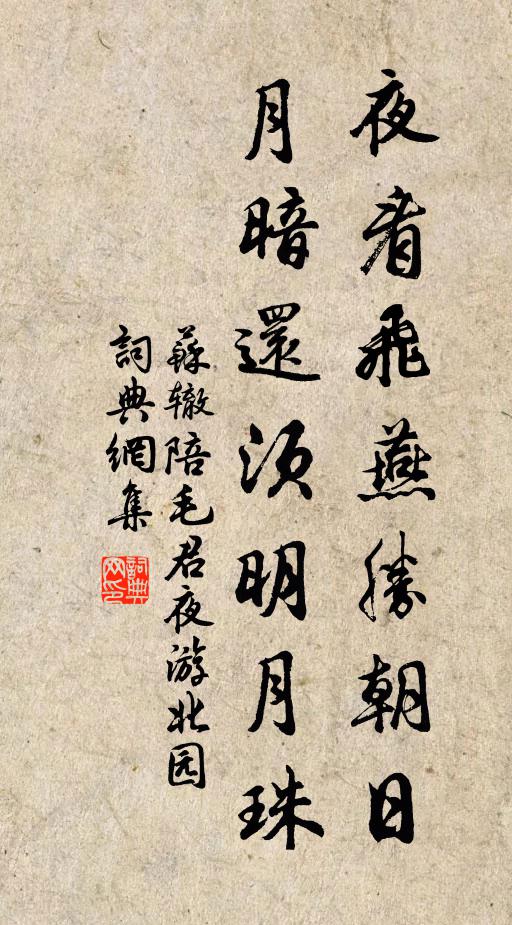 夜看飛燕勝朝日
月暗還須明月珠
蘇轍陪毛君夜游北园
詞典網集
詞典网印